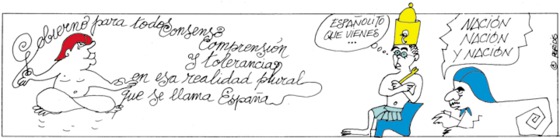 Gobierno para todos
Consenso
Comprensión
y tolerancia
en esa realidad plural
que se llama España
ESPAÑOLITO
QUE VIENES...
...
NACIÓN
NACIÓN
Y NACIÓN